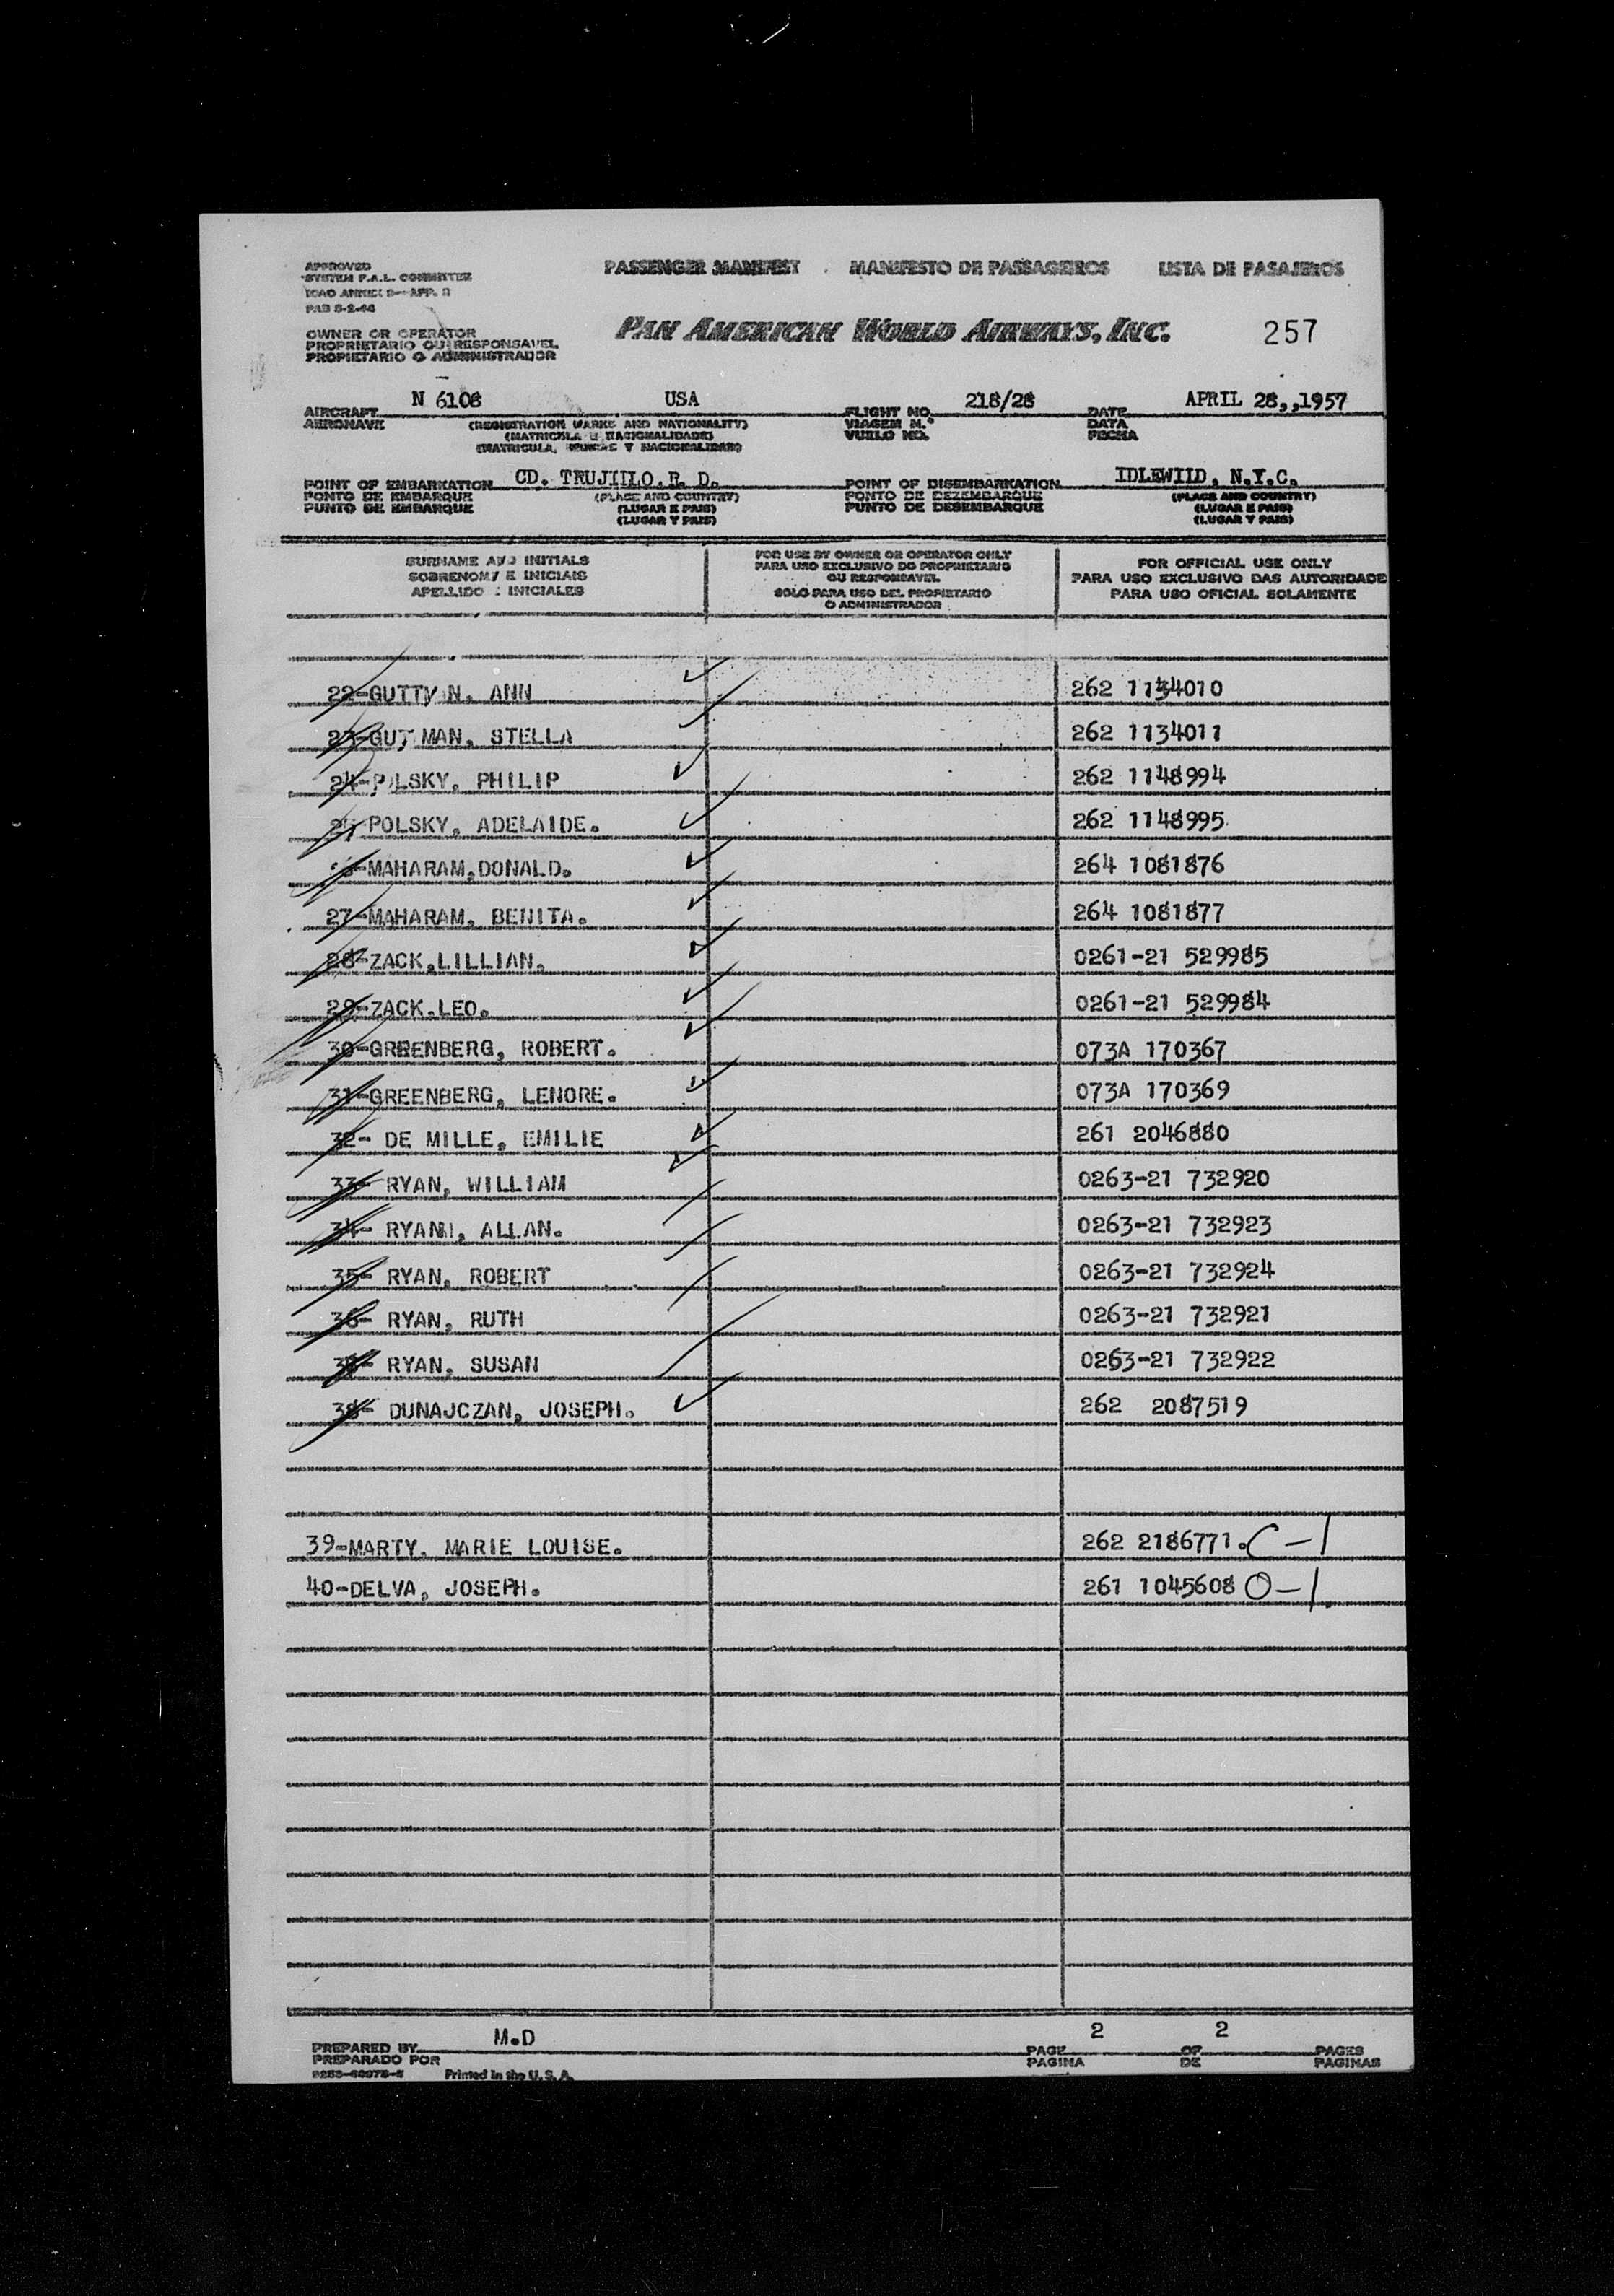 APPROVED
SYSTEM F.A.L. COMMITTEE
ICAO ANNEX 9-APP. 3
PAB 5-2-46
PASSENGER MANIFEST . MANIFESTO DE PASSAGEIROS LISTA DE PASAJEROS
OWNER OR OPERATOR
PROPRIETARIO OU RESPONSAVEL
PROPIETARIO O ADMINISTRADOR
PAN AMERICAN WORLD AIRWAYS, INC.
257
AIRCRAFT N 6108 USA FLIGHT NO. 218/28 DATE APRIL 28,,1957
AERONAVE (REGISTRATION MARKS AND NATIONALITY) VIAGEM N.º DATA
(MATRICULA E NACIONALIDADE) VUELO NO. FECHA
(MATRICULA, MARCAS Y NACIONALIDAD)
POINT OF EMBARKATION CD. TRUJILLO.R. D. POINT OF DISEMBARKATION IDLEWILD, N.Y.C.
PONTO DE EMBARQUE (PLACE AND COUNTRY) PONTO DE DEZEMBARQUE (PLACE AND COUNTRY)
PUNTO DE EMBARQUE (LUGAR E PAIS) PUNTO DE DESEMBARQUE (LUGAR E PAIS)
(LUGAR Y PAIS) (LUGAR Y PAIS)
SURNAME AND INITIALS
SOBRENOME E INICIAIS
APELLIDO E INICIALES
FOR USE BY OWNER OR OPERATOR ONLY
PARA USO EXCLUSIVO DO PROPRIETARIO
OU RESPONSAVEL
SOLO PARA USO DEL PROPIETARIO
O ADMINISTRADOR
FOR OFFICIAL USE ONLY
PARA USO EXCLUSIVO DAS AUTORIDADE
PARA USO OFICIAL SOLAMENTE
22-GUTTMAN, ANN 262 1134010
23-GUTMAN, STELLA 262 1134011
24-POLSKY, PHILIP 262 1148994
25-POLSKY, ADELAIDE. 262 1148995
26-MAHARAM,DONALD. 264 1081876
27-MAHARAM, BENITA. 264 1081877
28-ZACK,LILLIAN. 0261-21 529985
29-ZACK.LEO. 0261-21 529984
30-GREENBERG, ROBERT. 073A 170367
31-GREENBERG, LENORE. 073A 170369
32- DE MILLE, EMILIE 261 2046880
33- RYAN, WILLIAM 0263-21 732920
34- RYAN, ALLAN. 0263-21 732923
35- RYAN, ROBERT 0263-21 732924
36- RYAN, RUTH 0263-21 732921
37- RYAN, SUSAN 0263-21 732922
38- DUNAJCZAN, JOSEPH. 262 2087519
39-MARTY, MARIE LOUISE. 262 2186771. C-1
40-DELVA, JOSEPH. 261 1045608 O-1.
PREPARED BY M.D PAGE 2 OF 2 PAGES
PREPARADO POR PAGINA DE PAGINAS
Printed in the U. S. A.